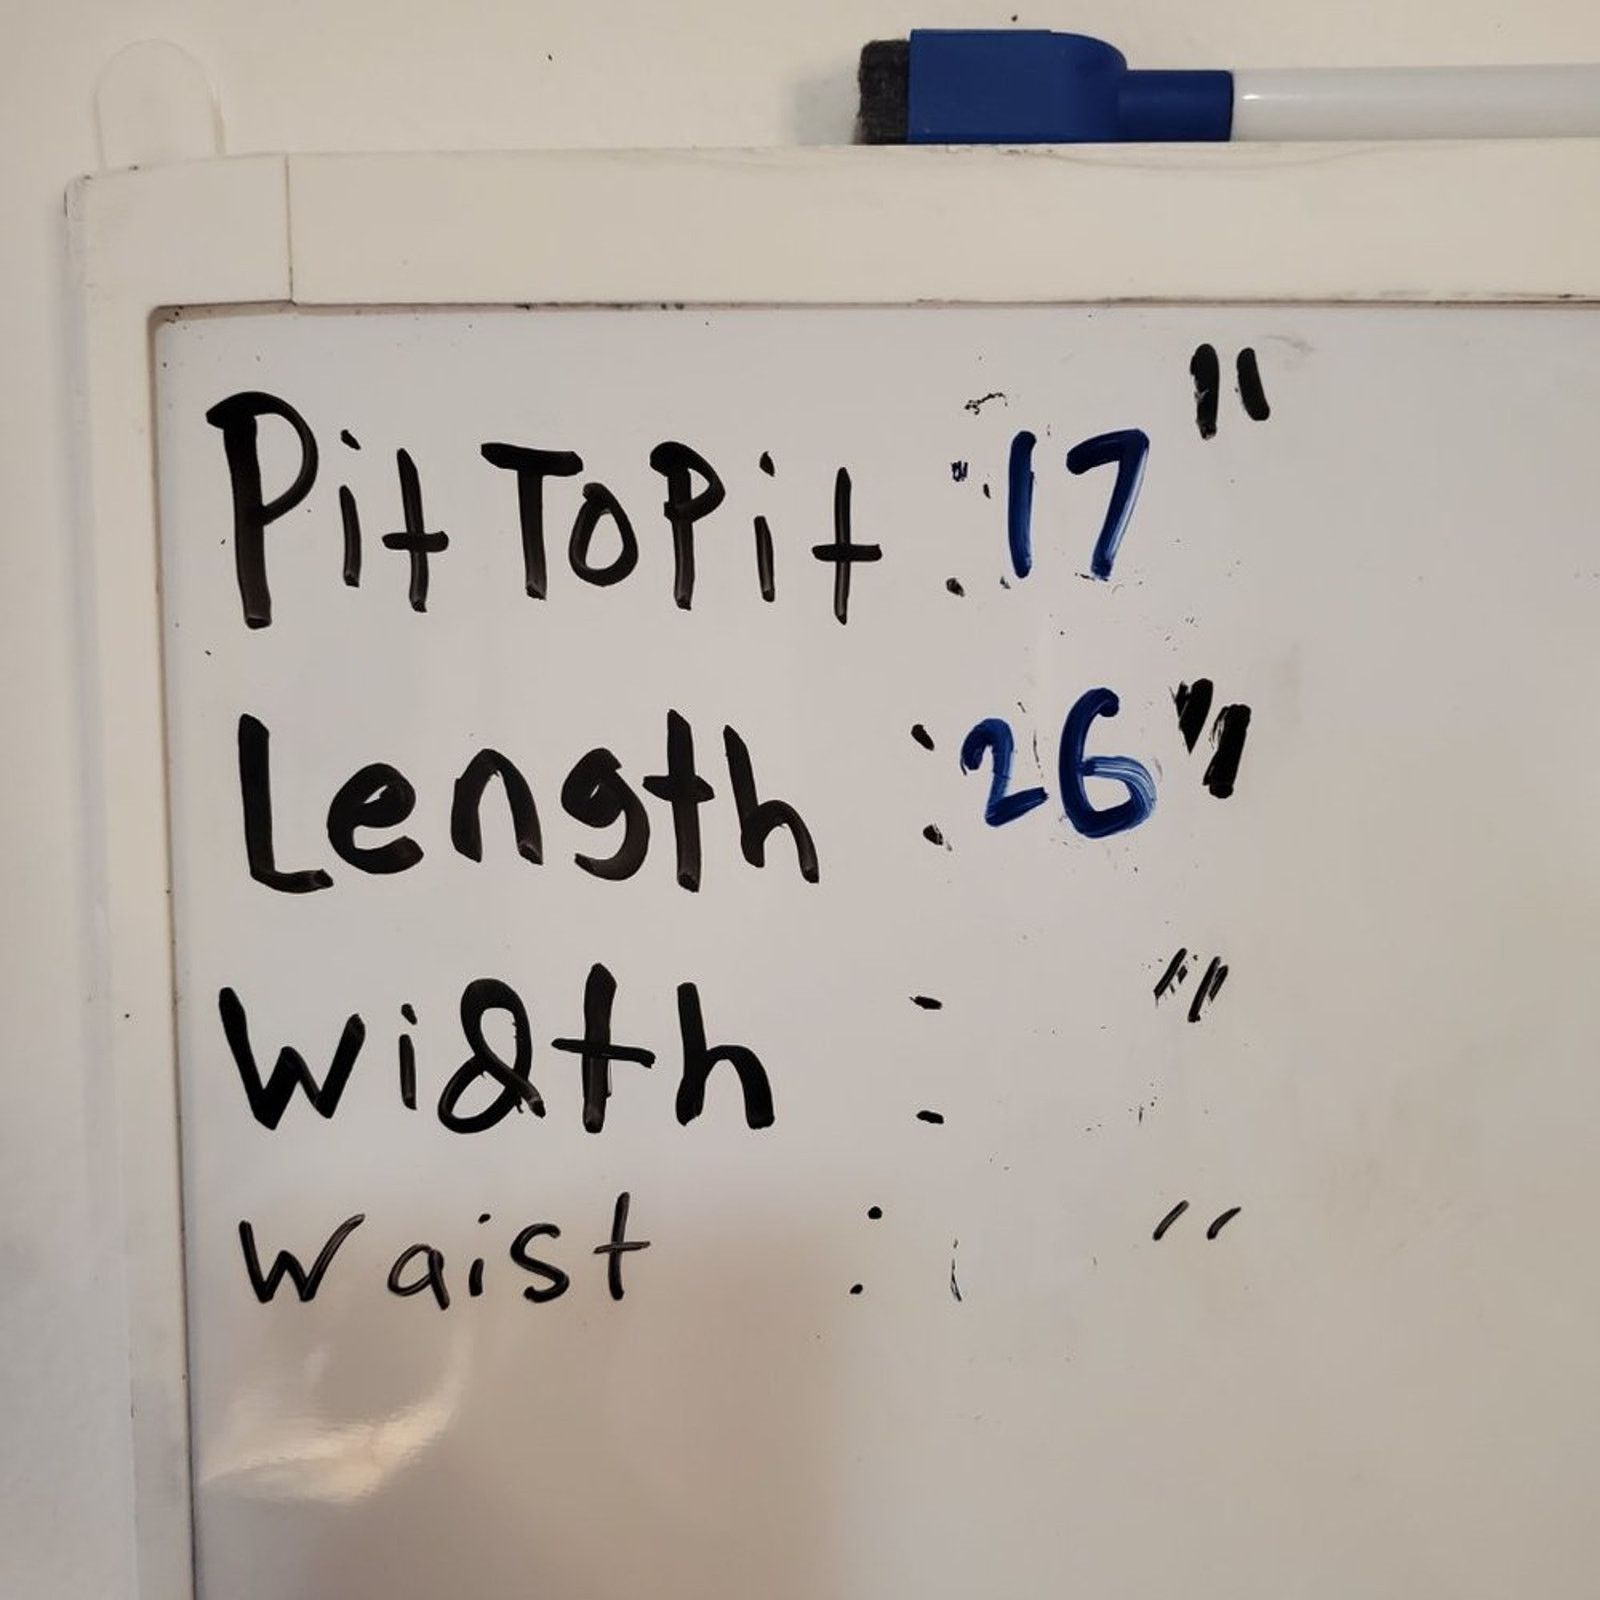 Pit To Pit : 17"
Length : 26"
Width : "
Waist : "